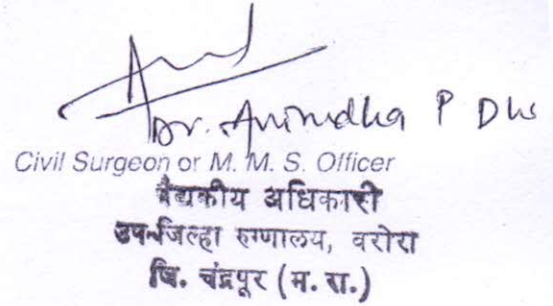 Dr. Anirudha P
Civil Surgeon or M. M. S. Officer
वैद्यकीय अधिकारी
उपजिल्हा रुग्णालय, वरोरा
जि. चंद्रपूर (म. रा.)